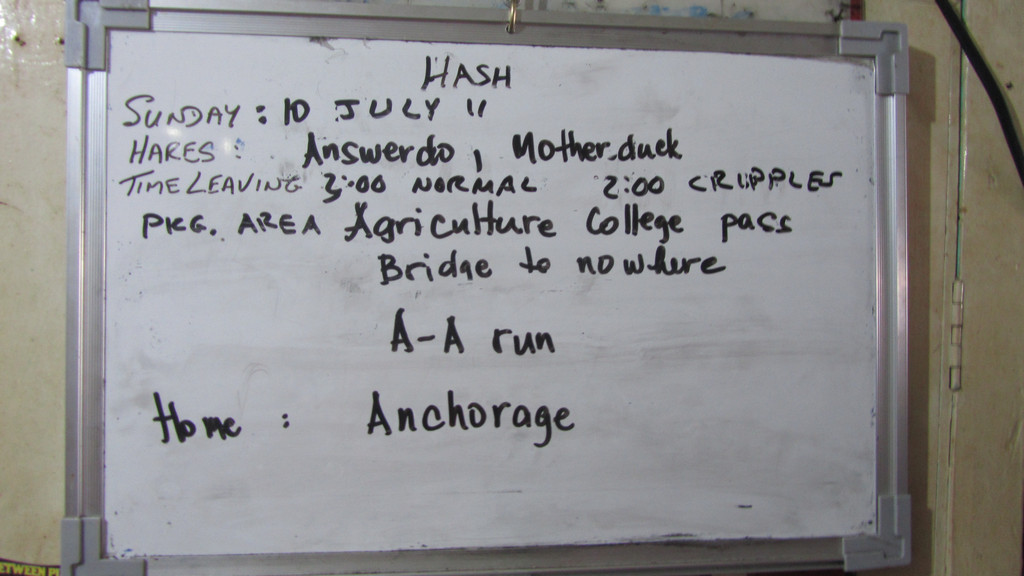 HASH
SUNDAY: 10 JULY 11
HARES: Answerdo, Mother-duck
TIME LEAVING 3:00 NORMAL 2:00 CRIPPLES
PKG. AREA Agriculture College pass
Bridge to nowhere
A-A run
Home : Anchorage
ETWEEN P